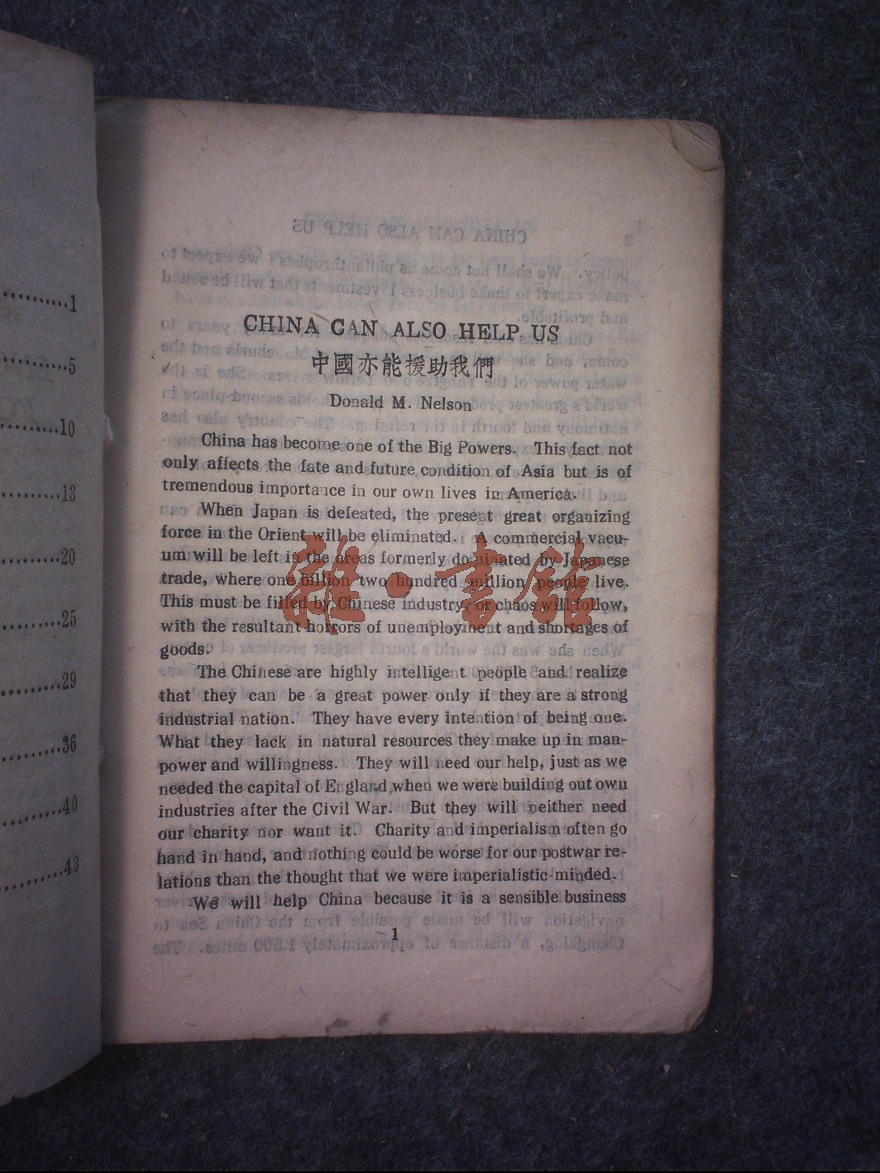 .......1
.......5
.......10
.......13
.......20
.......25
.......29
.......36
.......40
.......43
CHINA CAN ALSO HELP US
中國亦能援助我們
Donald M. Nelson
China has become one of the Big Powers. This fact not
only affects the fate and future condition of Asia but is of
tremendous importance in our own lives in America.
When Japan is defeated, the present great organizing
force in the Orient will be eliminated. A commercial vacu-
um will be left in the areas formerly dominated by Japanese
trade, where one billion two hundred million people live.
This must be filled by Chinese industry, or chaos will follow,
with the resultant horrors of unemployment and shortages of
goods.
The Chinese are highly intelligent people and realize
that they can be a great power only if they are a strong
industrial nation. They have every intention of being one.
What they lack in natural resources they make up in man-
power and willingness. They will need our help, just as we
needed the capital of England when we were building out own
industries after the Civil War. But they will neither need
our charity nor want it. Charity and imperialism often go
hand in hand, and nothing could be worse for our postwar re-
lations than the thought that we were imperialistic-minded.
We will help China because it is a sensible business
1
雜·書館